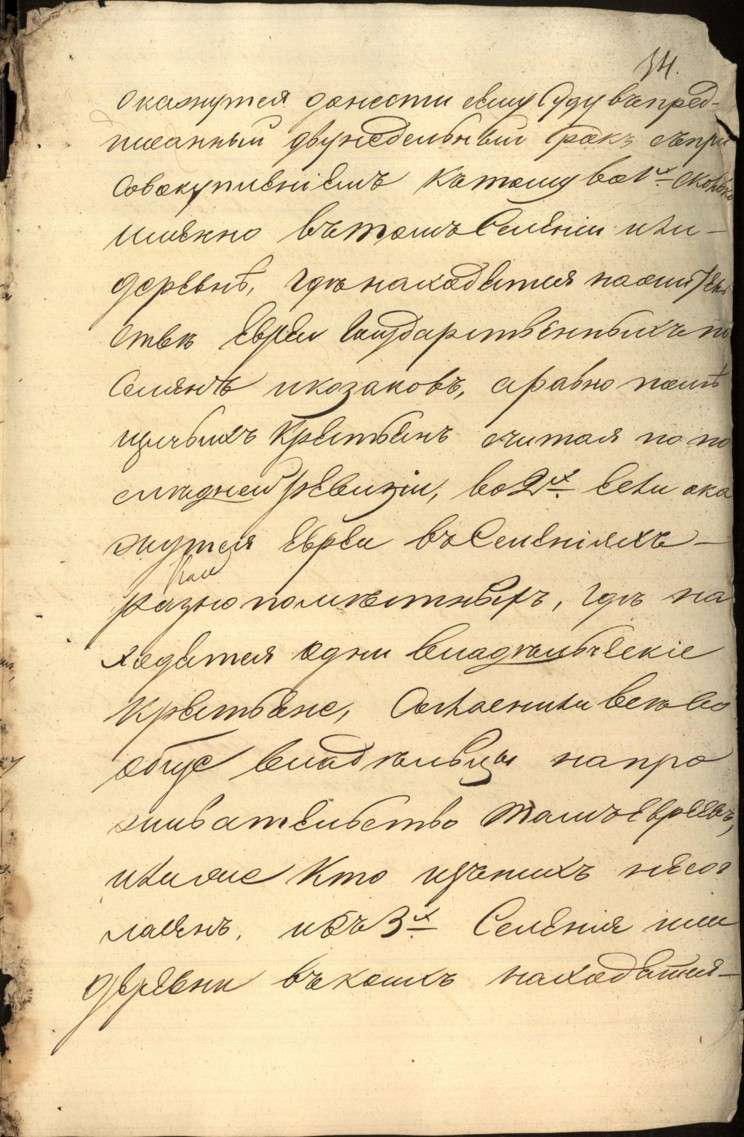 34.
окажутся донести сему Суду въ пред-
писанный двунедельный срок съ при
совокупленіемъ къ тому во 1х сколько
именно въ томъ Селеніи или -
деревнѣ, гдѣ находятся на жительстве
ствѣ Евреи Государственныхъ по
селянъ и козаковъ, а равно помѣ
щичьихъ крестьянъ считая по по
следней ревизіи, во 2хъ Если ока
жутся Евреи въ Селеніяхъ -
или
разнопоместныхъ, гдѣ на
ходятся одни владѣльческіе
крестьяне, Согласны ли все во
обще владѣльцы на про
живательство тамъ Евреевъ,
или же кто изъ нихъ несог
ласенъ, и въ 3х Селенія или
деревни въ коихъ находятся -